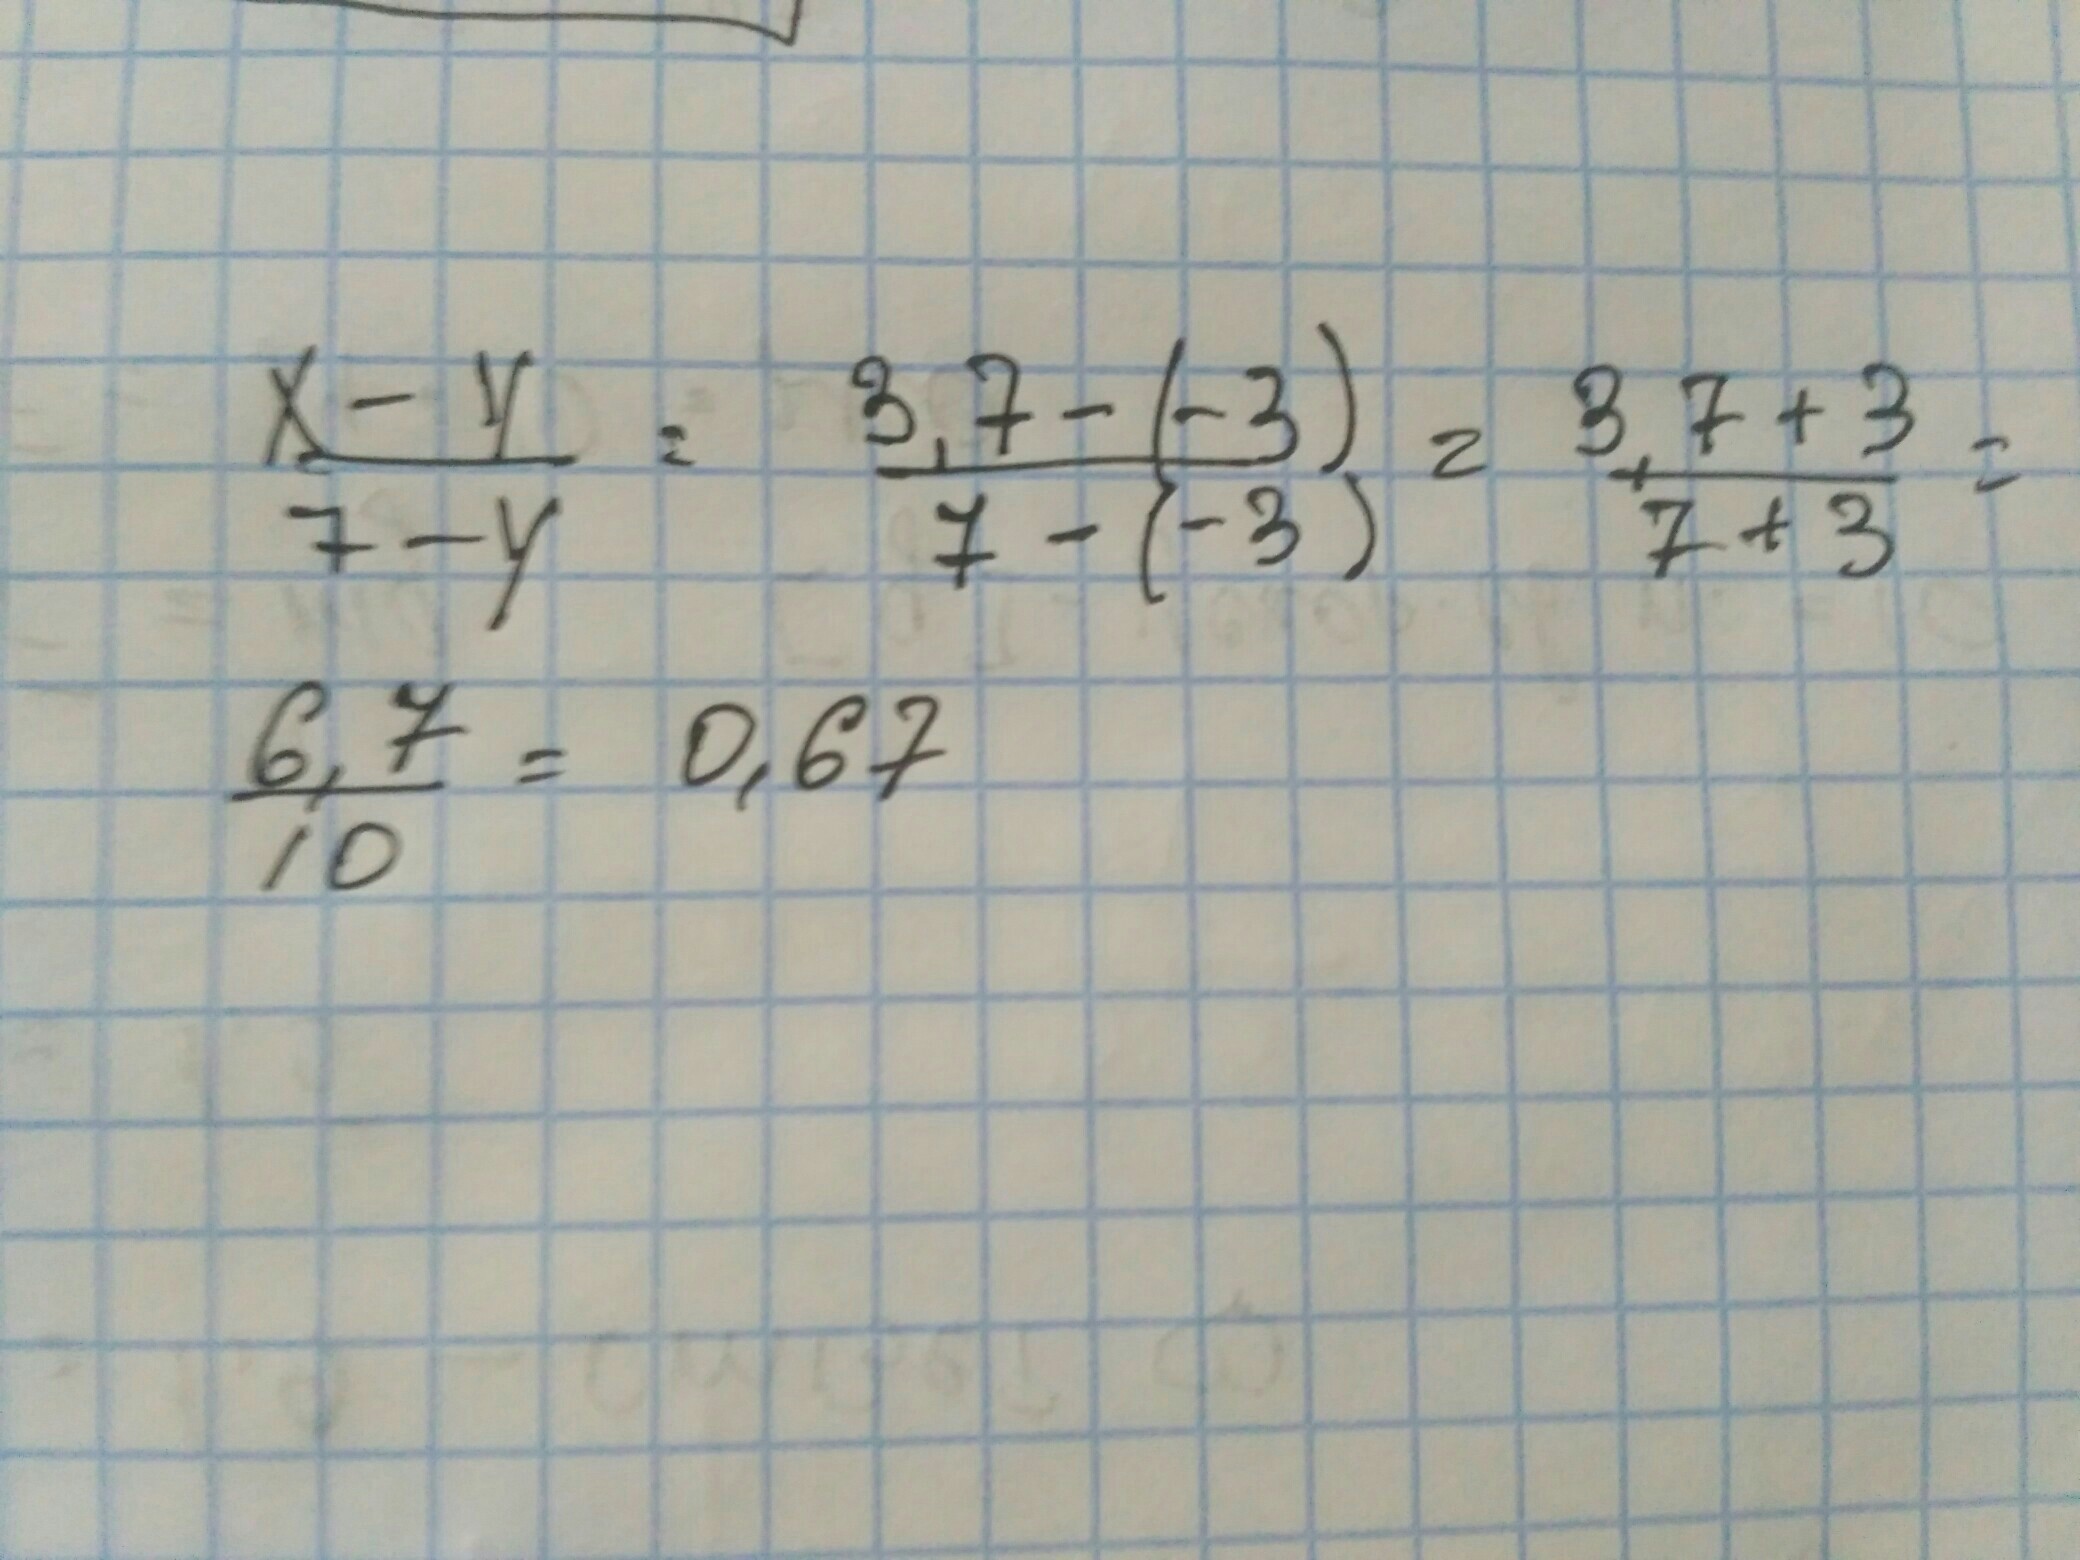 x - y / 7 - y = 3,7 - (-3) / 7 - (-3) = 3,7 + 3 / 7 + 3 =
6,7 / 10 = 0,67